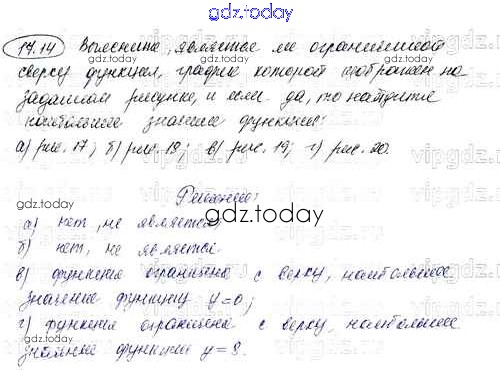 gdz.today
17.14 Выясните, является ли ограниченной
сверху функция, график которой изображен на
заданном рисунке, и если да, то найдите
наибольшее значение функции:
а) рис. 17; б) рис. 18; в) рис. 19; г) рис. 20.
Решение:
gdz.today
а) нет, не является
б) нет, не является.
в) функция ограничена с верху, наибольшее
значение функции y=0;
г) функция ограничена с верху, наибольшее
значение функции y=8.
gdz.today